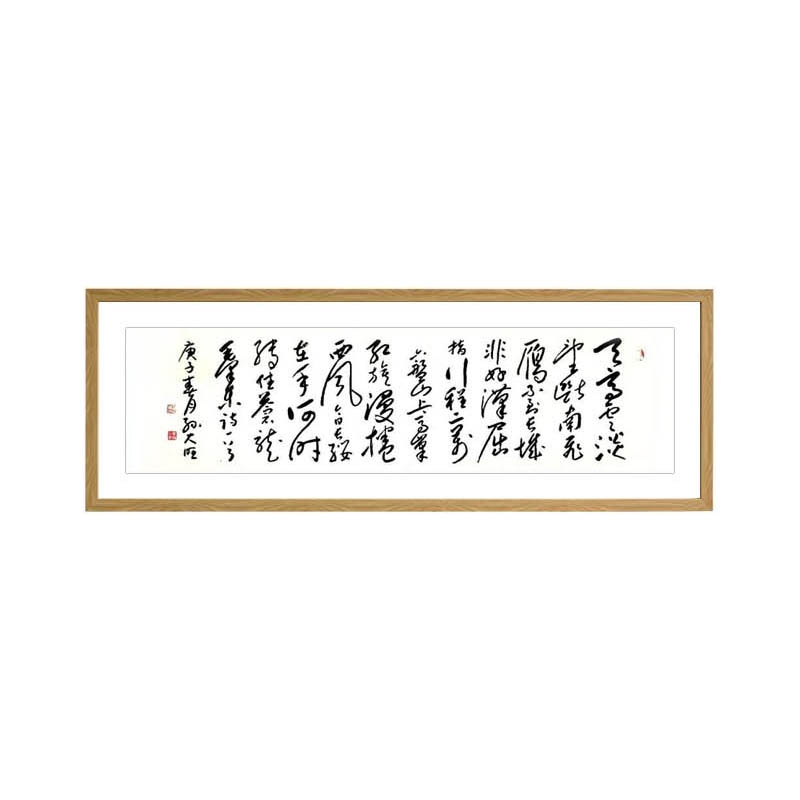 天高云淡
望斷南飛
鴈不到长城
非好漢屈
指行程二萬
六盤山上高峯
红旗漫捲
西风今日长缨
在手何时
缚住苍龙
毛泽东诗一首
庚子春月孙大旺